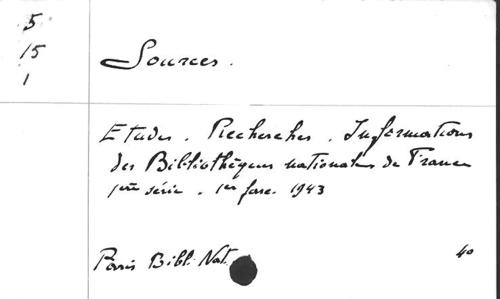 5
15
1
Sources.
Etudes. Recherches. Informations
des Bibliothèques nationales de France
1ère série. 1er fasc. 1943
Paris Bibl. Nat.
4o